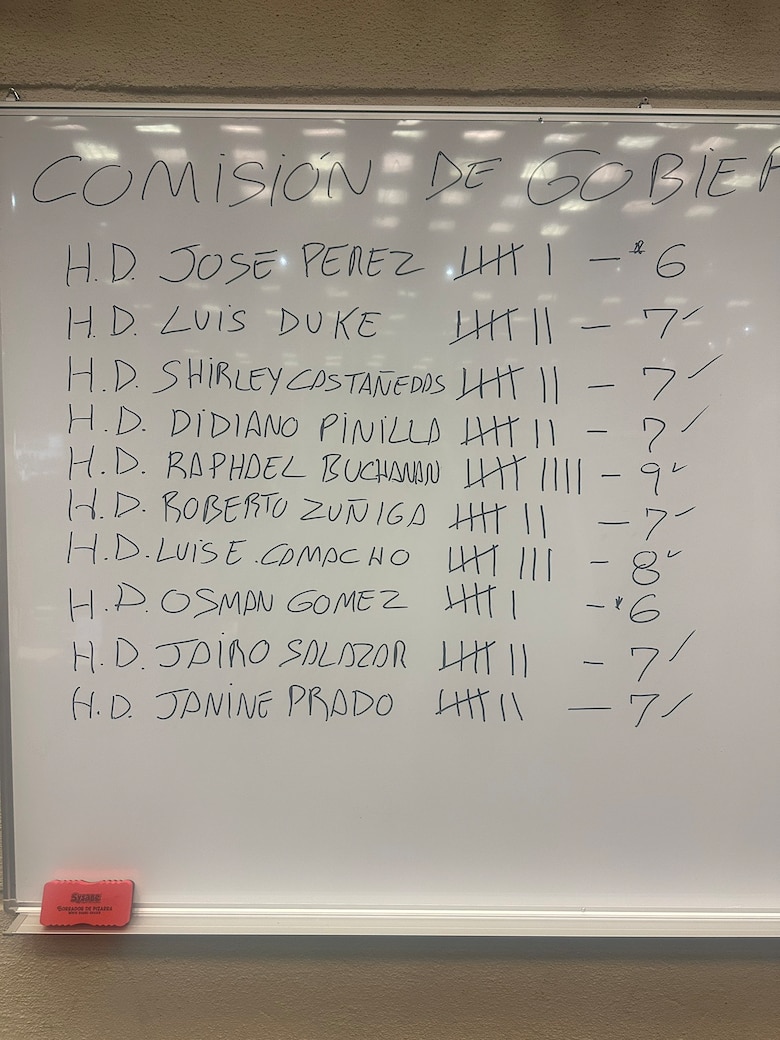 COMISIÓN DE GOBIER
H.D. JOSE PEREZ 𝍸 I – * 6
H.D. LUIS DUKE 𝍸 II – 7 ✓
H.D. SHIRLEY CASTAÑEDAS 𝍸 II – 7 ✓
H.D. DIDIANO PINILLA 𝍸 II – 7 ✓
H.D. RAPHAEL BUCHANAN 𝍸 IIII – 9 ✓
H.D. ROBERTO ZUÑIGA 𝍸 II – 7 ✓
H.D. LUIS E. CAMACHO 𝍸 III – 8 ✓
H.D. OSMAN GOMEZ 𝍸 I – * 6
H.D. JAIRO SALAZAR 𝍸 II – 7 ✓
H.D. JANINE PRADO 𝍸 II – 7 ✓
Sysabe
BORRADOR DE PIZARRA